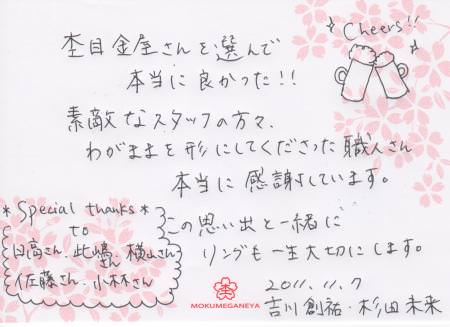 杢目金屋さんを選んで
本当に良かった!!
Cheers!!
素敵なスタッフの方々、
わがままを形にしてくださった職人さん
本当に感謝しています。
この思い出と一緒に
リングも一生大切にします。
*Special thanks*
to
日高さん、此嶋さん、横山さん
佐藤さん、小林さん
2011.11.7
吉川創祐・杉田未来
MOKUMEGANEYA